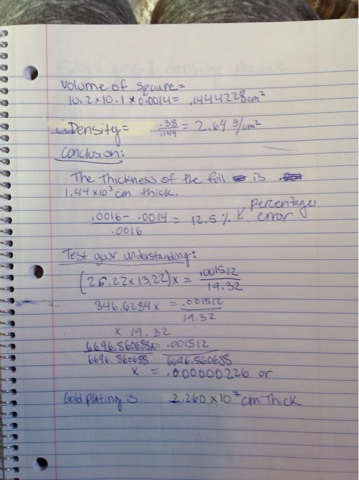 Volume of square=
10.2×10.1×0.0014= .1444228cm²
Density= .38/.144 = 2.64 g/cm²
Conclusion:
The Thickness of the foil is
1.44×10³ cm thick.
.0016-.0014/.0016 = 12.5% Percentage error
Test your understanding:
(26.22×13.22)x = .001512/19.32
346.6284x = .001512/19.32
x 19.32
6696.860688x/6696.860688 = .001512/6696.860688
x = .000000226 or
Gold plating is 2.260×10⁷cm Thick